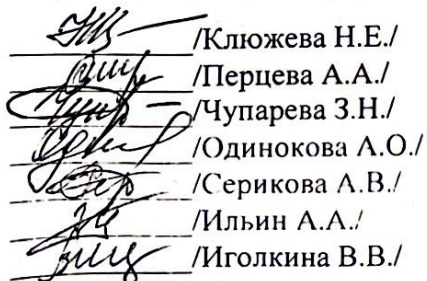 /Клюжева Н.Е./
/Перцева А.А./
/Чупарева З.Н./
/Одинокова А.О./
/Серикова А.В./
/Ильин А.А./
/Иголкина В.В./